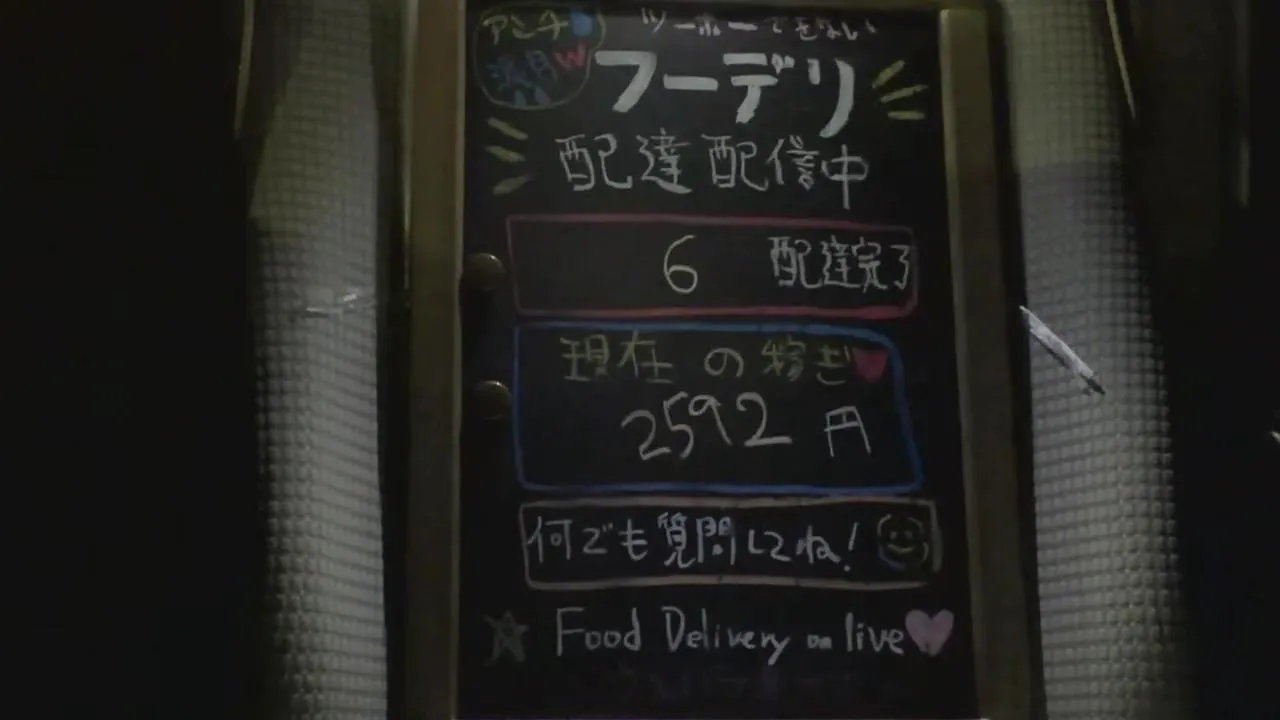 アンチ
ツーホーできない
フーデリ
配達配信中
6 配達完了
現在の稼ぎ
2592円
何でも質問してね!
Food Delivery on live